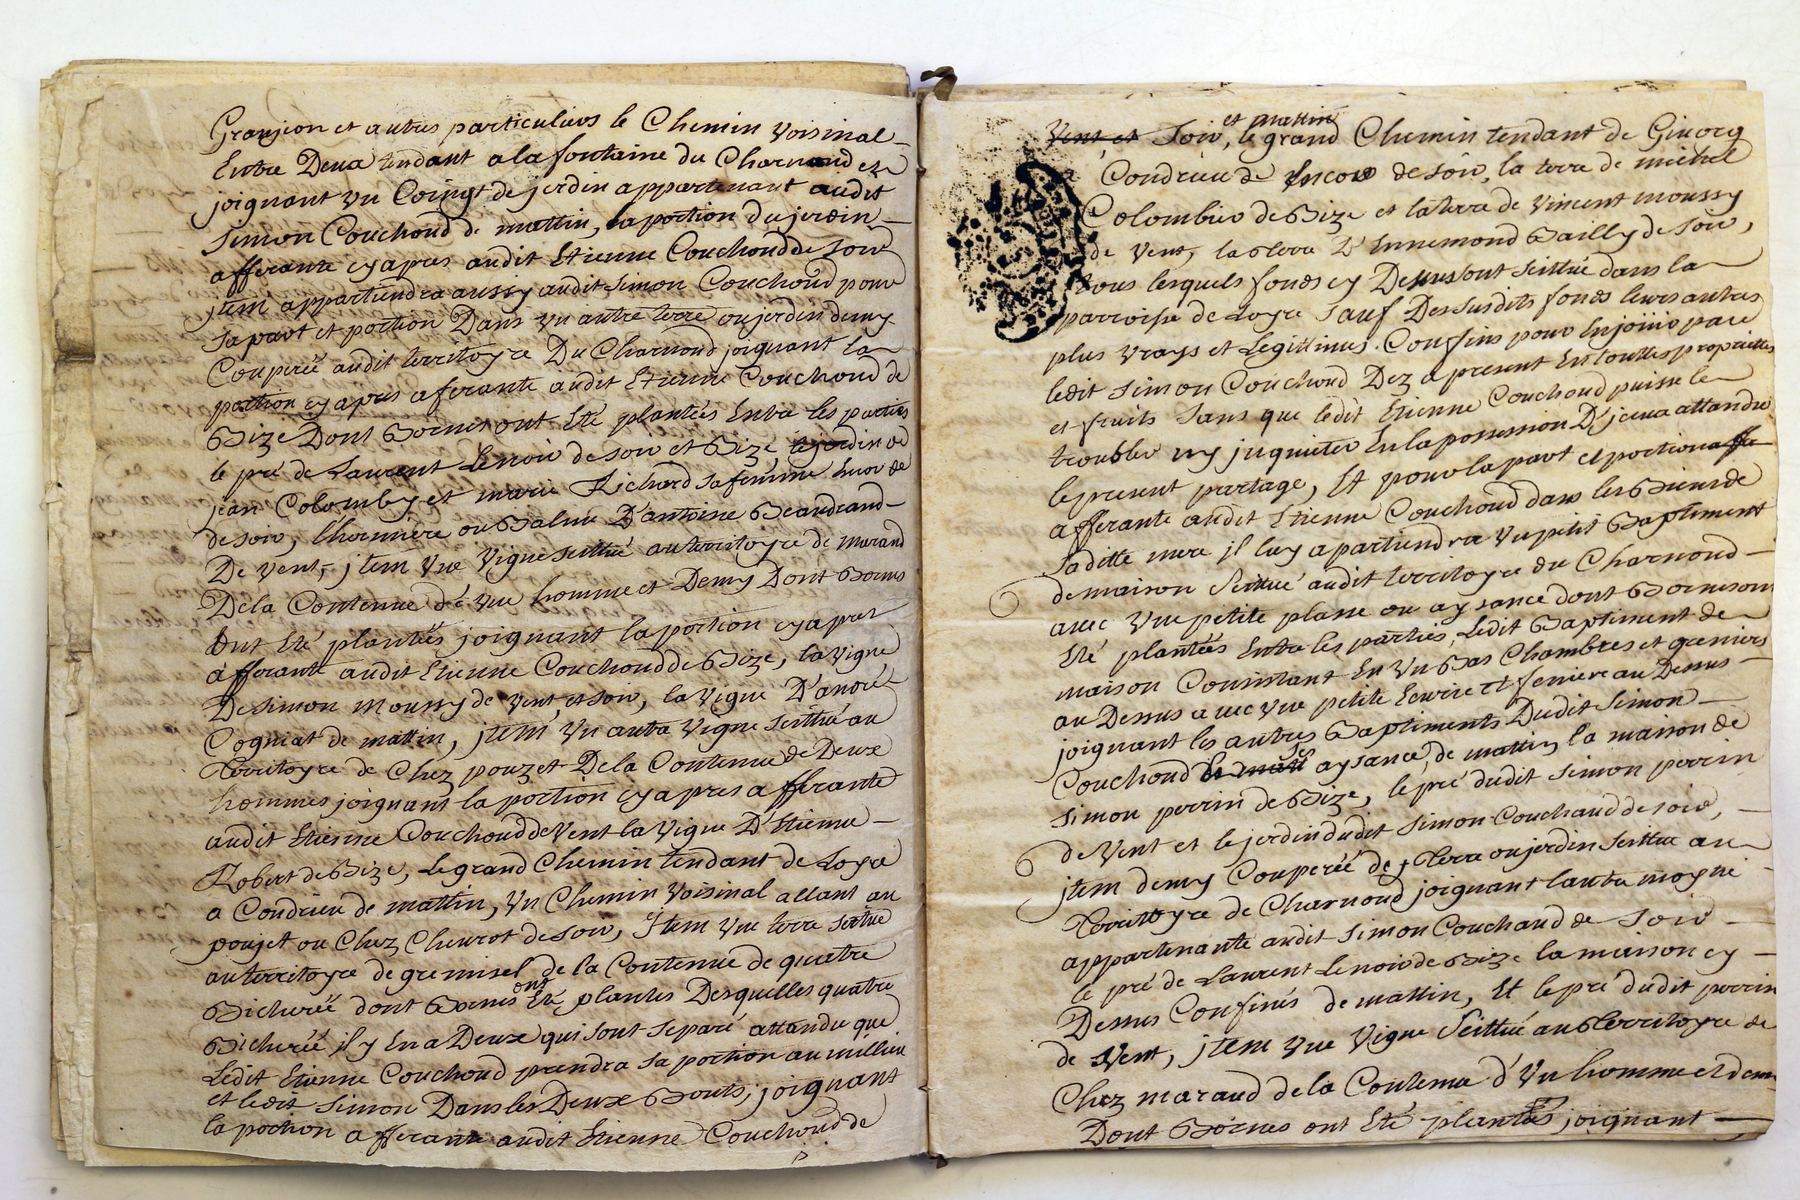 Granjeon et autres particuliers le Chemin voisinal
Entre Deux tendant a la fontaine du Charnond et
joignant un Coingt de jerdin appartenant audit
Simon Couchoud de mattin, la portion du jerdin
afferante cy apres audit Etienne Couchoud de Soir
jtem appartiendra aussy audit Simon Couchoud pour
sa part et portion Dans un autre terre ou jerdin demy
Couperéé audit territoyre Du Charnond joignant la
portion cy apres aferante audit Etienne Couchoud de
Bize Dont Bornes ont Eté plantéés Entre les parties
le pré de Laurent Lenoir de soir et Bize, le jerdin de
jean Colomby et marie Richard sa femme Encor de
de soir, l'hermère ou Balme D'antoine Beaudrand
De vent, jtem Vne Vigne scittué au territoyre de marand
De la Contenue dé Vne homme et Demy Dont Bornes
Ont Eté plantéés joignant la portion cy apres
afferante audit Etienne Couchoud de Bize, la vigne
De simon moussy de vent et soir, la Vigne D'andré
Cogniat de mattin, jtem Vn autre Vigne scittué au
Territoyre de Chez pouzet De la Contenue de Deux
hommes joignant la portion cy apres afferante
audit Etienne Couchoud de Vent la Vigne D'Etienne
Robert de Bize, Le grand Chemin tendant de Loyre
a Condrieu de mattin, Vn Chemin Voisinal allant au
poujet ou Chez Cheurot de soir, Jtem Vne terre scittué
au territoyre de gremisel de la Contenue de quatre
Bicheréé dont Bornes ont Eté plantés Desquelles quatre
Bicheréé jl y En a Deux qui sont separé attandu que
Ledit Etienne Couchoud prendra sa portion au millieu
et ledit Simon Dans les Deux Bouts, joignant
la portion afferante audit Etienne Couchoud de
Vent et Soir, et mattin le grand Chemin tendant de Givorg
a Condrieu de Encore de soir, la terre de michel
Colombier de Bize et la terre de vincent moussy
de Vent, la terre D'Ennemond Bailly de Soir,
tous lesquels fonds cy Dessus sont scittué dans la
parroisse de Loyre sauf Des susdits fonds leurs autres
plus vrays et Legittimes Confins pour En joüir par
ledit simon Couchoud Dez a present En touttes proprietés
et fruits sans que ledit Etienne Couchoud puisse le
troubler ny jnquieter En la possession D'jceux attandu
le present partage, Et pour la part et portion affe
afferante audit Etienne Couchoud dans les Biens de
sa ditte mere jl luy apartiendra Vn petit Baptiment
de maison scittué audit territoyre du Charnond
avec Vne petite plasse ou aysance dont Bornes ont
Eté plantéés Entre les parties, Ledit Baptiment de
maison Consistant En Vn Bas Chambres et greniers
au Dessus avec Vne petite Ecurie et feniere au Dessus
joignant les autres Baptiments Dudit Simon
Couchoud les aysance, de mattin, la maison de
Simon perrin de Bize, le pré dudit simon perrin
de Vent et le jerdin dudit simon Couchaud de soir,
jtem demy Couperéé de Terre ou jerdin scittue au
Territoyre de Charnoud joignant lautre moyné
appartenante audit simon Couchaud de Soir
le pré de Laurent Lenoir de Bize la maison cy
Dessus Confinés de mattin, Et le pré dudit perrin
de Vent, jtem Vne Vigne scittué au Territoyre de
Chez maraud de la Contenue d'Vn homme et dem
Dont Bornes ont Eté plantéés joignant